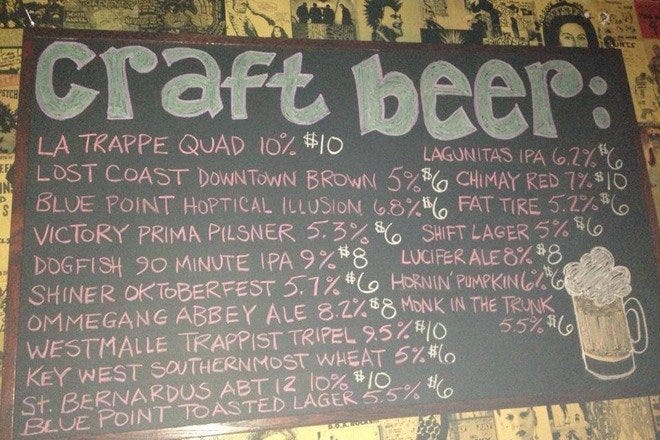 craft beer:
LA TRAPPE QUAD 10% $10
LOST COAST DOWNTOWN BROWN 5% $6
BLUE POINT HOPTICAL ILLUSION 6.8% $6
VICTORY PRIMA PILSNER 5.3% $6
DOGFISH 90 MINUTE IPA 9% $8
SHINER OKTOBERFEST 5.7% $6
OMMEGANG ABBEY ALE 8.2% $8
WESTMALLE TRAPPIST TRIPEL 9.5% $10
KEY WEST SOUTHERNMOST WHEAT 5% $6
ST. BERNARDUS ABT 12 10% $10
BLUE POINT TOASTED LAGER 5.5% $6
LAGUNITAS IPA 6.2% $6
CHIMAY RED 7% $10
FAT TIRE 5.2% $6
SHIFT LAGER 5% $6
LUCIFER ALE 8% $8
HORNIN' PUMPKIN 6% $6
MONK IN THE TRUNK
5.5% $6